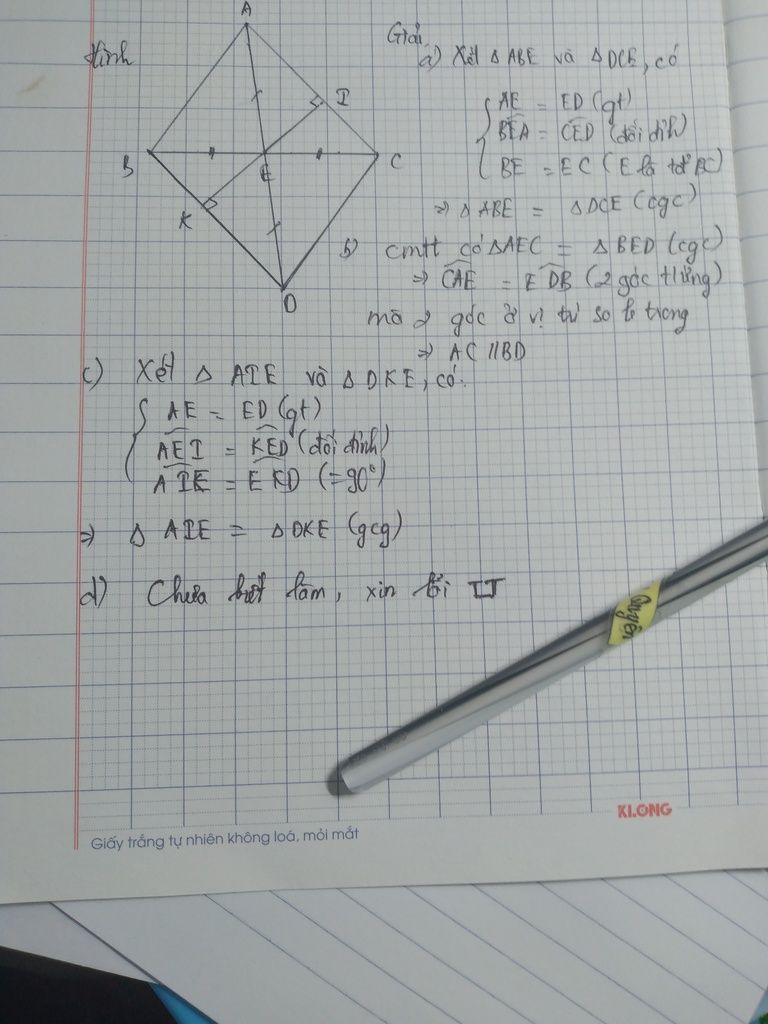 Hình
A
B
C
D
E
I
K
Giải
a) Xét Δ ABE và Δ DCE, có
AE = ED (gt)
BEA = CED (đối đỉnh)
BE = EC (E là tđ BC)
⇒ Δ ABE = Δ DCE (cgc)
b) cmtt có Δ AEC = Δ BED (cgc)
⇒ CAE = EDB (2 góc tứng)
mà 2 góc ở vị trí so le trong
⇒ AC // BD
c) Xét Δ AIE và Δ DKE, có:
AE = ED (gt)
AEI = KED (đối đỉnh)
AIE = EKD (=90°)
⇒ Δ AIE = Δ DKE (gcg)
d) Chưa biết làm, xin lỗi TT
Quyên
KLONG
Giấy trắng tự nhiên không loá, mỏi mắt